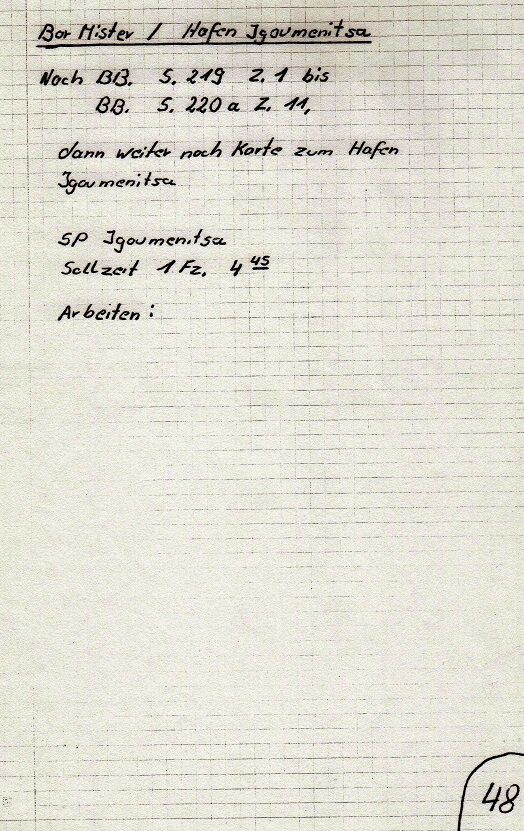 Bar Mister / Hafen Igoumenitsa
Nach BB. S. 219 Z. 1 bis
BB. S. 220a Z. 11,
dann weiter nach Karte zum Hafen
Igoumenitsa
SP Igoumenitsa
Sollzeit 1 Fz. 4 45
Arbeiten:
48